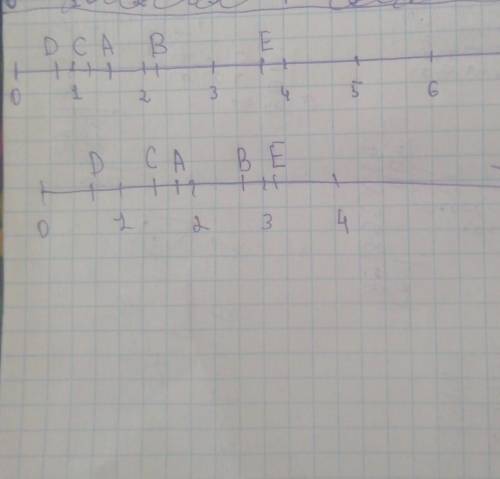 D C A B E
0 1 2 3 4 5 6
D C A B E
0 1 2 3 4